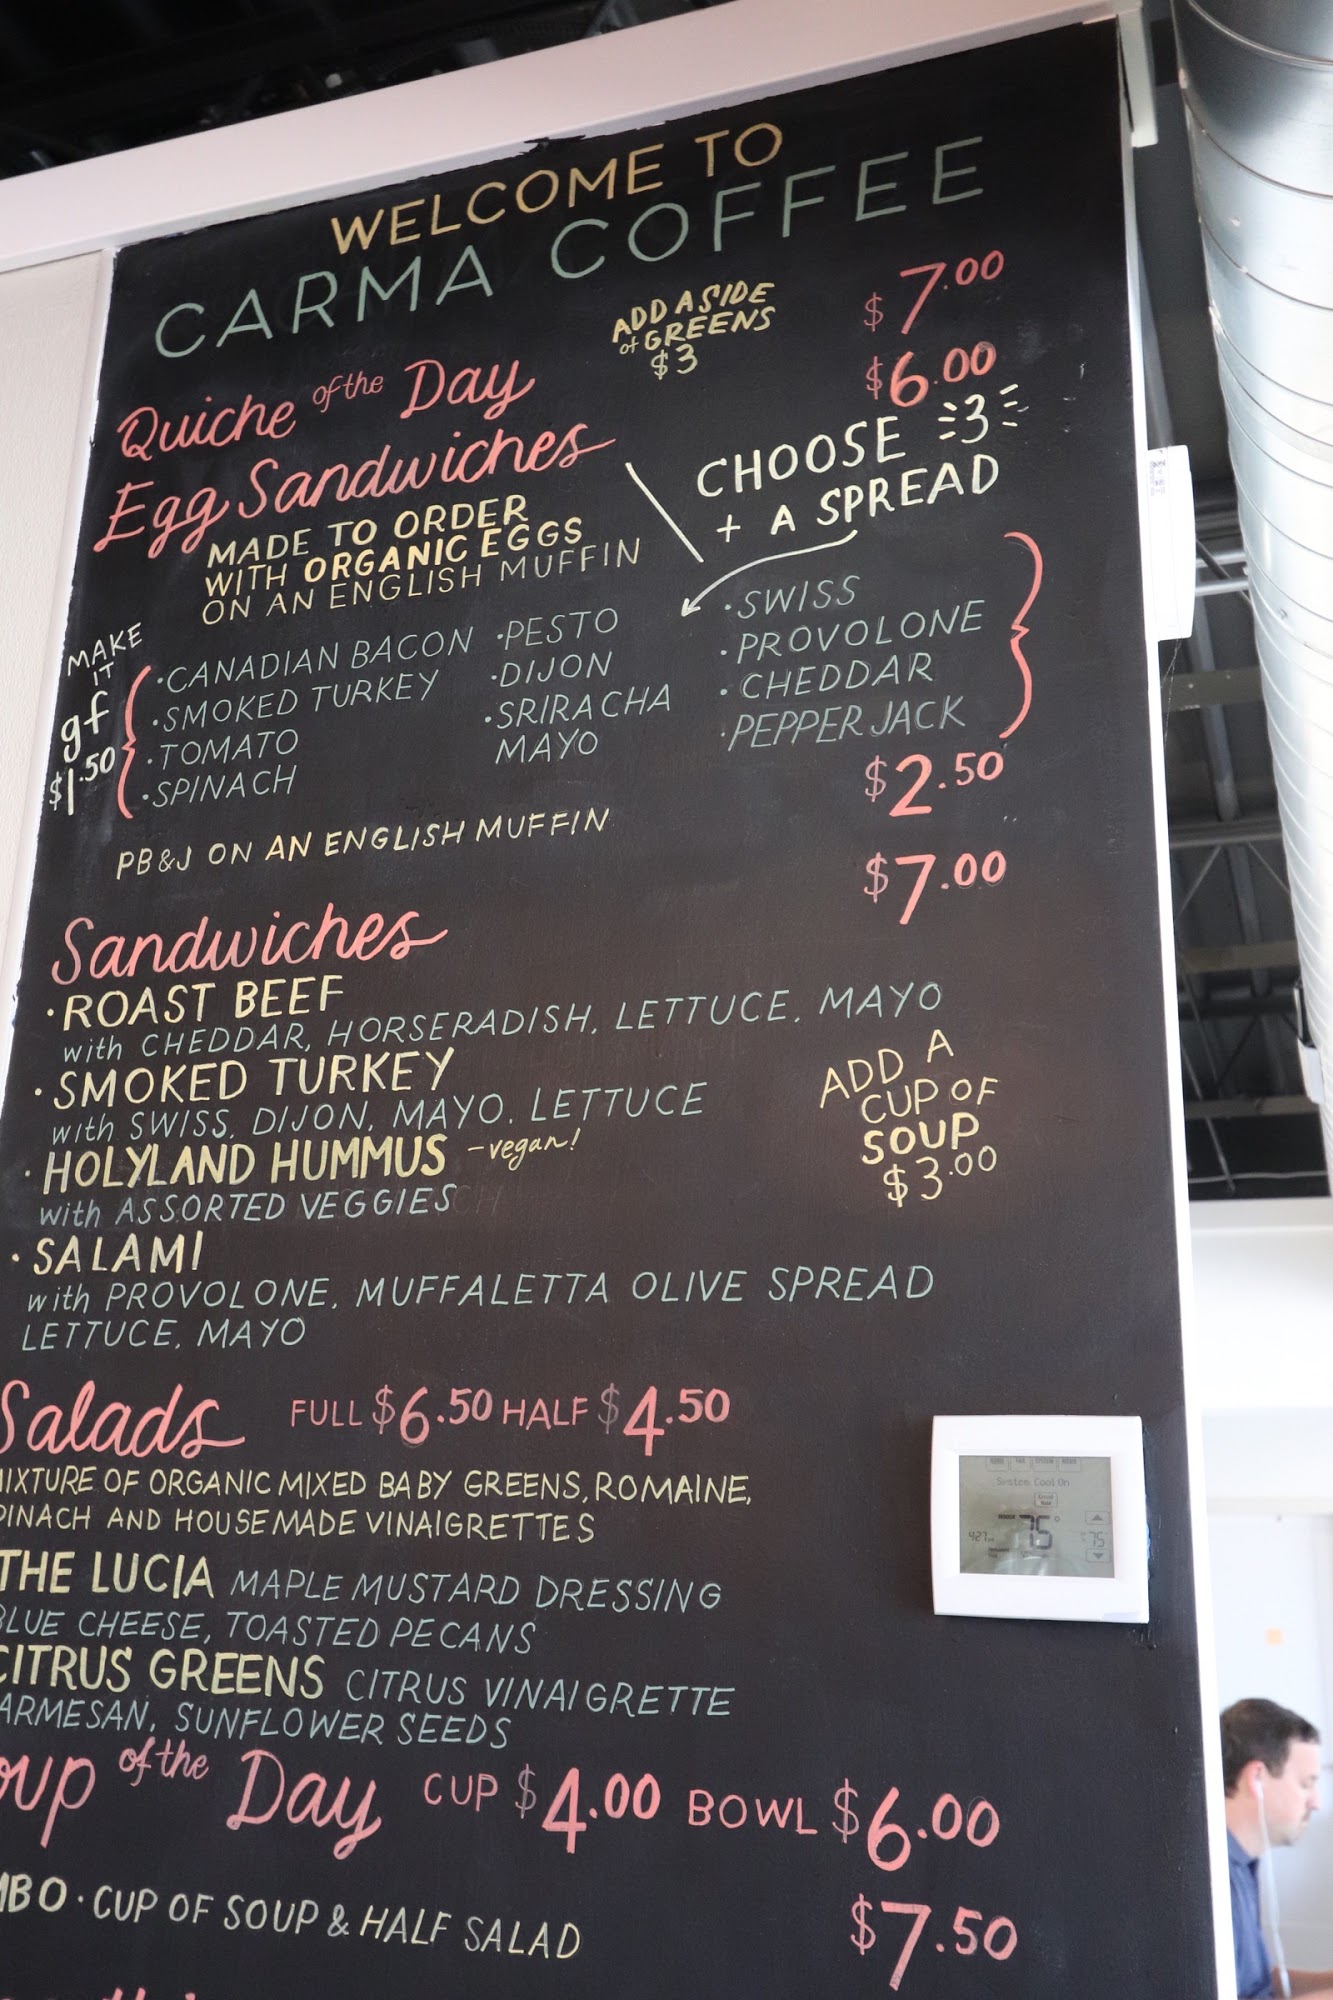 WELCOME TO
CARMA COFFEE
Quiche of the Day
ADD A SIDE
of GREENS
$3
$7.00
Egg Sandwiches
$6.00
MADE TO ORDER
WITH ORGANIC EGGS
ON AN ENGLISH MUFFIN
CHOOSE 3
+ A SPREAD
MAKE
IT
gf
$1.50
·CANADIAN BACON
·SMOKED TURKEY
·TOMATO
·SPINACH
·PESTO
·DIJON
·SRIRACHA
MAYO
·SWISS
·PROVOLONE
·CHEDDAR
·PEPPER JACK
PB&J ON AN ENGLISH MUFFIN
$2.50
Sandwiches
$7.00
·ROAST BEEF
with CHEDDAR, HORSERADISH, LETTUCE, MAYO
·SMOKED TURKEY
with SWISS, DIJON, MAYO, LETTUCE
·HOLYLAND HUMMUS -vegan!
with ASSORTED VEGGIES
ADD A
CUP OF
SOUP
$3.00
·SALAMI
with PROVOLONE, MUFFALETTA OLIVE SPREAD
LETTUCE, MAYO
Salads FULL $6.50 HALF $4.50
IXTURE OF ORGANIC MIXED BABY GREENS, ROMAINE,
PINACH AND HOUSEMADE VINAIGRETTES
THE LUCIA MAPLE MUSTARD DRESSING
BLUE CHEESE, TOASTED PECANS
CITRUS GREENS CITRUS VINAIGRETTE
ARMESAN, SUNFLOWER SEEDS
oup of the Day CUP $4.00 BOWL $6.00
MBO · CUP OF SOUP & HALF SALAD $7.50
System Cool On
75°
4:27
75